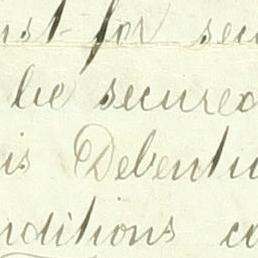 ust for secu
be secured
is Debentu
nditions co